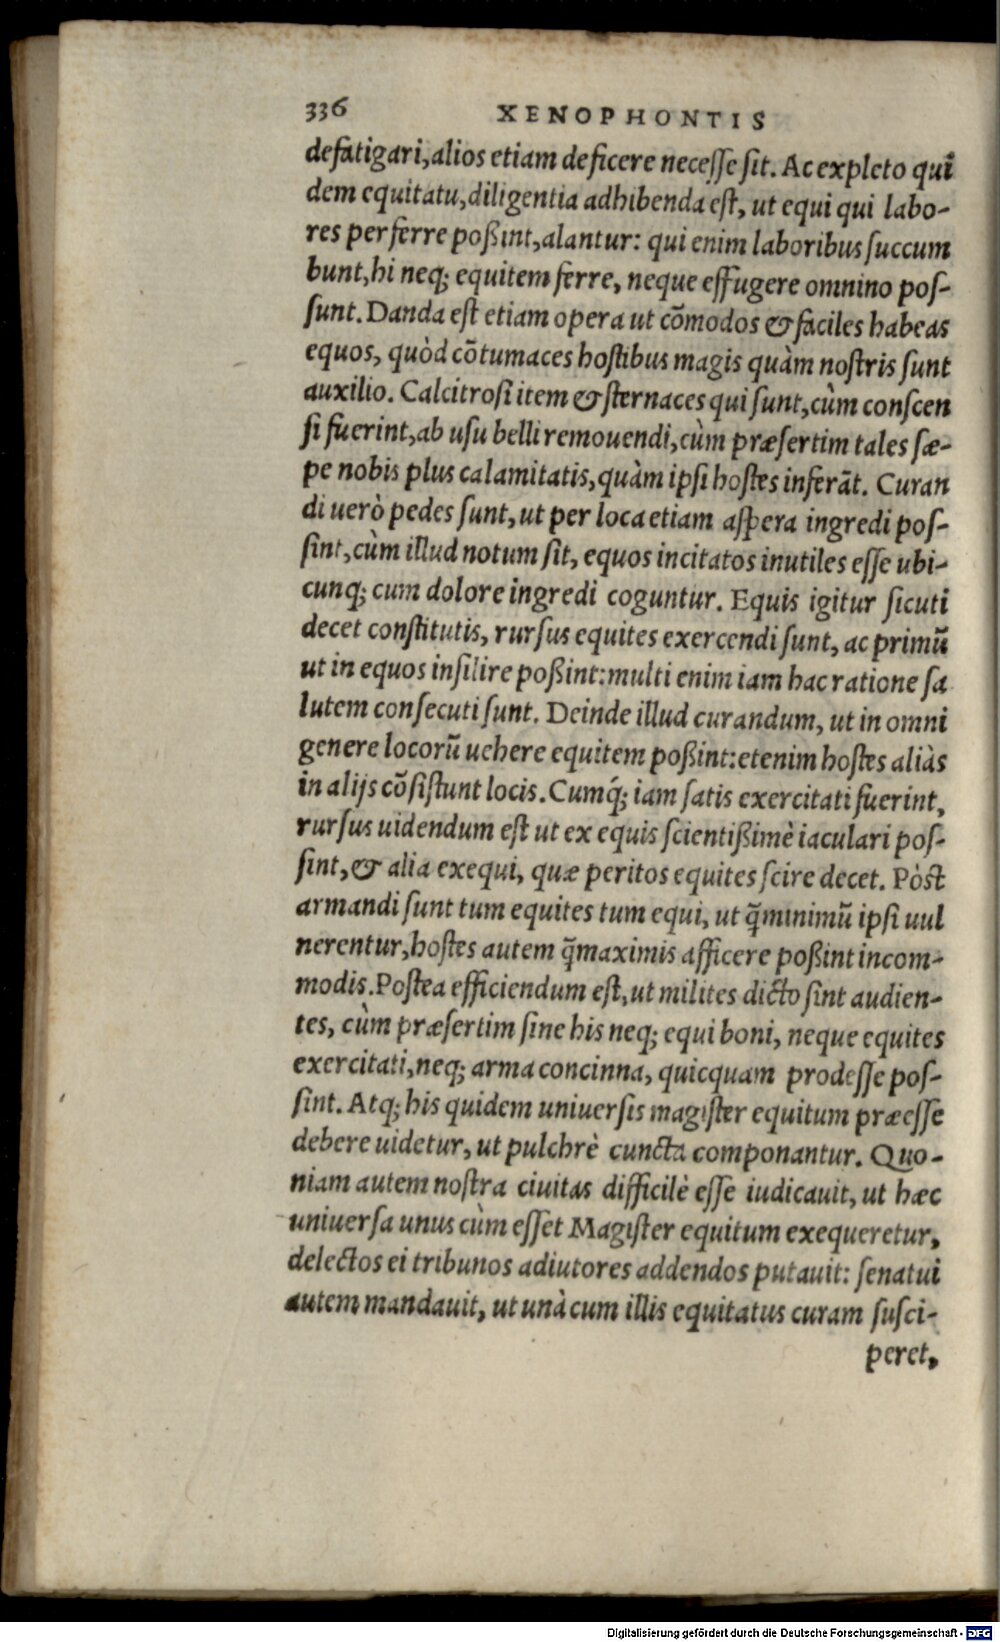 336 XENOPHONTIS
defatigari, alios etiam deficere necesse sit. Ac expleto qui
dem equitatu, diligentia adhibenda est, ut equi qui labo-
res perferre poßint, alantur: qui enim laboribus succum
bunt, hi neq; equitem ferre, neque effugere omnino pos-
sunt. Danda est etiam opera ut cōmodos & faciles habeas
equos, quòd cōtumaces hostibus magis quàm nostris sunt
auxilio. Calcitrosi item & sternaces qui sunt, cùm conscen
si fuerint, ab usu belli remouendi, cùm præsertim tales sæ-
pe nobis plus calamitatis, quàm ipsi hostes inferāt. Curan
di uerò pedes sunt, ut per loca etiam aspera ingredi pos-
sint, cùm illud notum sit, equos incitatos inutiles esse ubi-
cunq; cum dolore ingredi coguntur. Equis igitur sicuti
decet constitutis, rursus equites exercendi sunt, ac primū
ut in equos insilire poßint: multi enim iam hac ratione sa
lutem consecuti sunt. Deinde illud curandum, ut in omni
genere locorū uehere equitem poßint: etenim hostes aliàs
in alijs cōsistunt locis. Cumq́; iam satis exercitati fuerint,
rursus uidendum est ut ex equis scientißimè iaculari pos-
sint, & alia exequi, quæ peritos equites scire decet. Pòst
armandi sunt tum equites tum equi, ut q̄minimū ipsi uul
nerentur, hostes autem q̄maximis afficere poßint incom-
modis. Postea efficiendum est, ut milites dicto sint audien-
tes, cùm præsertim sine his neq; equi boni, neque equites
exercitati, neq; arma concinna, quicquam prodesse pos-
sint. Atq; his quidem uniuersis magister equitum præesse
debere uidetur, ut pulchrè cuncta componantur. Quo-
niam autem nostra ciuitas difficilè esse iudicauit, ut hæc
uniuersa unus cùm esset Magister equitum exequeretur,
delectos ei tribunos adiutores addendos putauit: senatui
autem mandauit, ut unà cum illis equitatus curam susci-
peret,
Digitalisierung gefördert durch die Deutsche Forschungsgemeinschaft - DFG